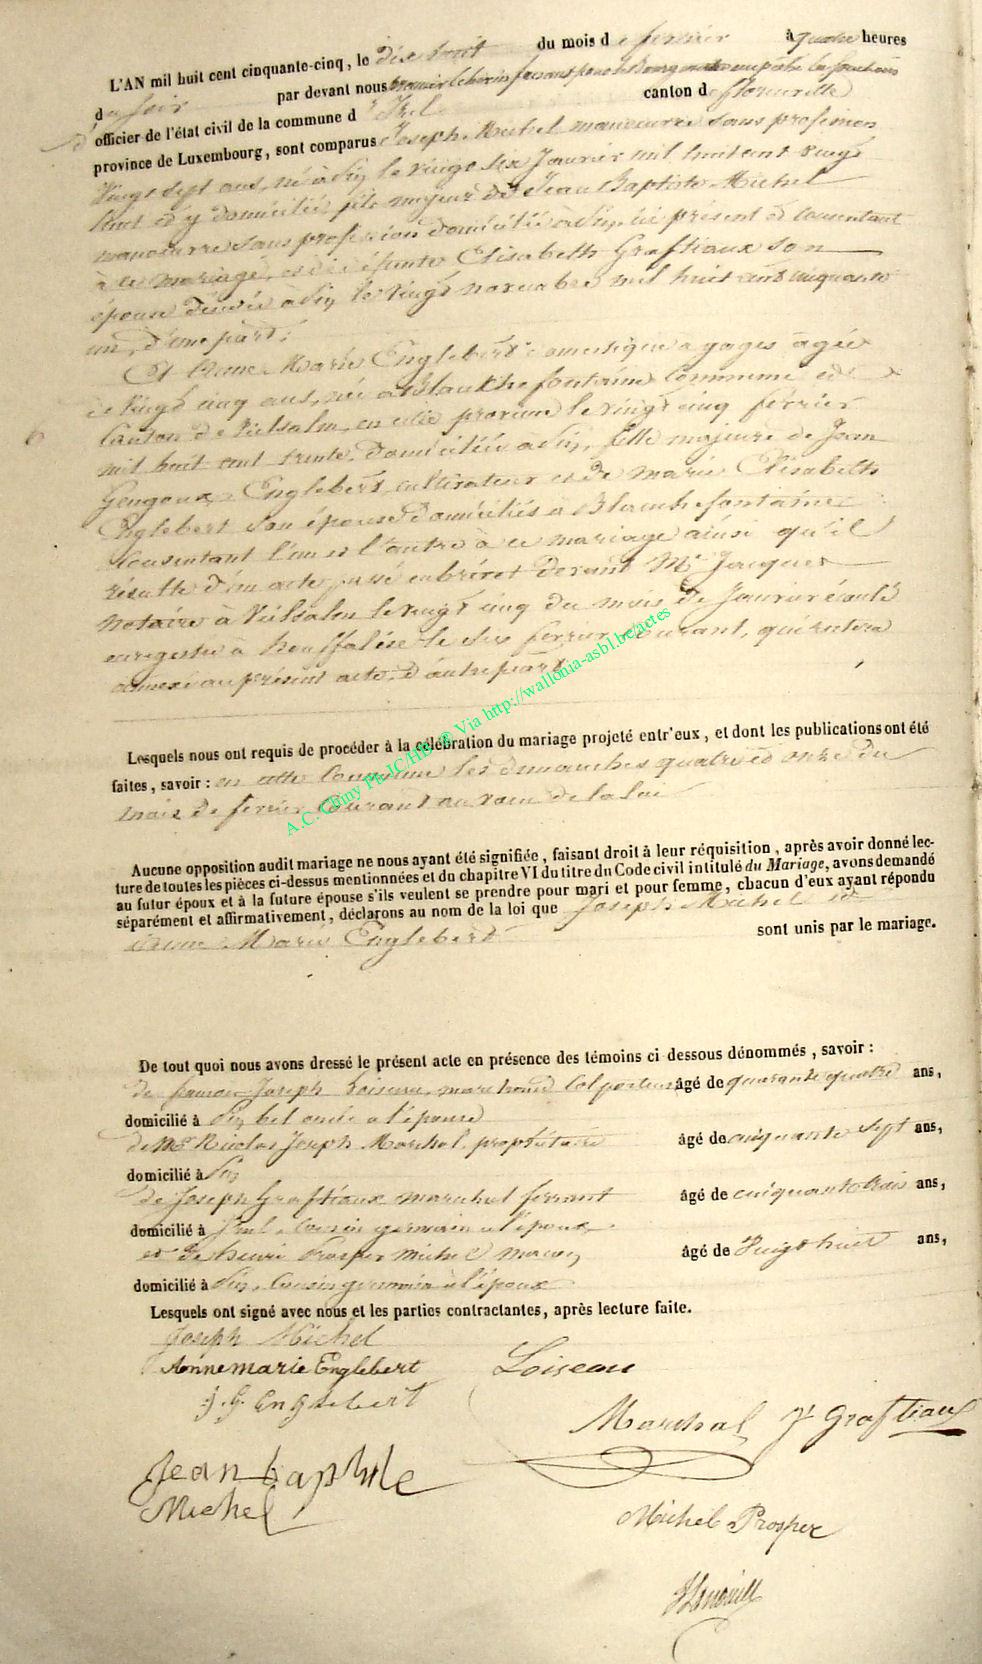 L'AN mil huit cent cinquante-cinq, le dix huit du mois de février à quatre heures
du soir par devant nous échevin faisant pour le Bourgmestre empêché les fonctions
d'officier de l'état civil de la commune d'Izel canton de florenville
province de Luxembourg, sont comparus Joseph Michel manoeuvre sans profession
Vingt sept ans, né à Pin le vingt six Janvier mil huit cent vingt
huit et y domicilié, fils majeur de Jean Baptiste Michel
manoeuvre sans profession domicilié à Pin, ici présent et consentant
à ce mariage, et de défunte Elisabeth Graftiaux son
épouse décédée à Pin le vingt novembre mil huit cent cinquante
un, d'une part;
Et Anne Marie Englebert domestique à gages âgée
de vingt cinq ans, née à Blanche fontaine Commune et
Canton de Vielsalm, en cette province le vingt cinq février
mil huit cent trente, domiciliée à Pin, fille majeure de Jean
Gengoux Englebert, cultivateur et de Marie Elisabeth
Englebert son épouse domiciliés à Blanche fontaine
Consentant l'un et l'autre à ce mariage ainsi qu'il
résulte d'un acte passé en brévet devant Mr Jacques
notaire à Vielsalm le vingt cinq du mois de Janvier écoulé
enregistré à houffalise le six février courant, qui restera
annexé au présent acte, d'autre part
Lesquels nous ont requis de procéder à la célébration du mariage projeté entr'eux, et dont les publications ont été
faites, savoir: en cette Commune les dimanches quatre et onze du
mois de février courant au voeu de la loi
Aucune opposition audit mariage ne nous ayant été signifiée, faisant droit à leur réquisition, après avoir donné lec-
ture de toutes les pièces ci-dessus mentionnées et du chapitre VI du titre du Code civil intitulé du Mariage, avons demandé
au futur époux et à la future épouse s'ils veulent se prendre pour mari et pour femme, chacun d'eux ayant répondu
séparément et affirmativement, déclarons au nom de la loi que Joseph Michel et
Anne Marie Englebert sont unis par le mariage.
De tout quoi nous avons dressé le présent acte en présence des témoins ci dessous dénommés, savoir:
de Joseph Loiseau, marchand Colporteur âgé de quarante quatre ans,
domicilié à Pin bel oncle à l'épouse
de Mr Nicolas Joseph Marchal, propriétaire âgé de cinquante sept ans,
domicilié à Pin
de Joseph Graftiaux maréchal ferrant âgé de cinquante trois ans,
domicilié à Izel, cousin germain à l'époux
et de henri Prosper Michel maçon âgé de vingt huit ans,
domicilié à Pin, Cousin germain à l'époux
Lesquels ont signé avec nous et les parties contractantes, après lecture faite.
Joseph Michel
Anne marie Englebert Loiseau
j. g. Englebert
Marchal J Graftiaux
Jean baptiste
Michel
Michel Prosper
A.C. Chiny Ph JC/HB ® Via http://wallonia-asbl.be/actes